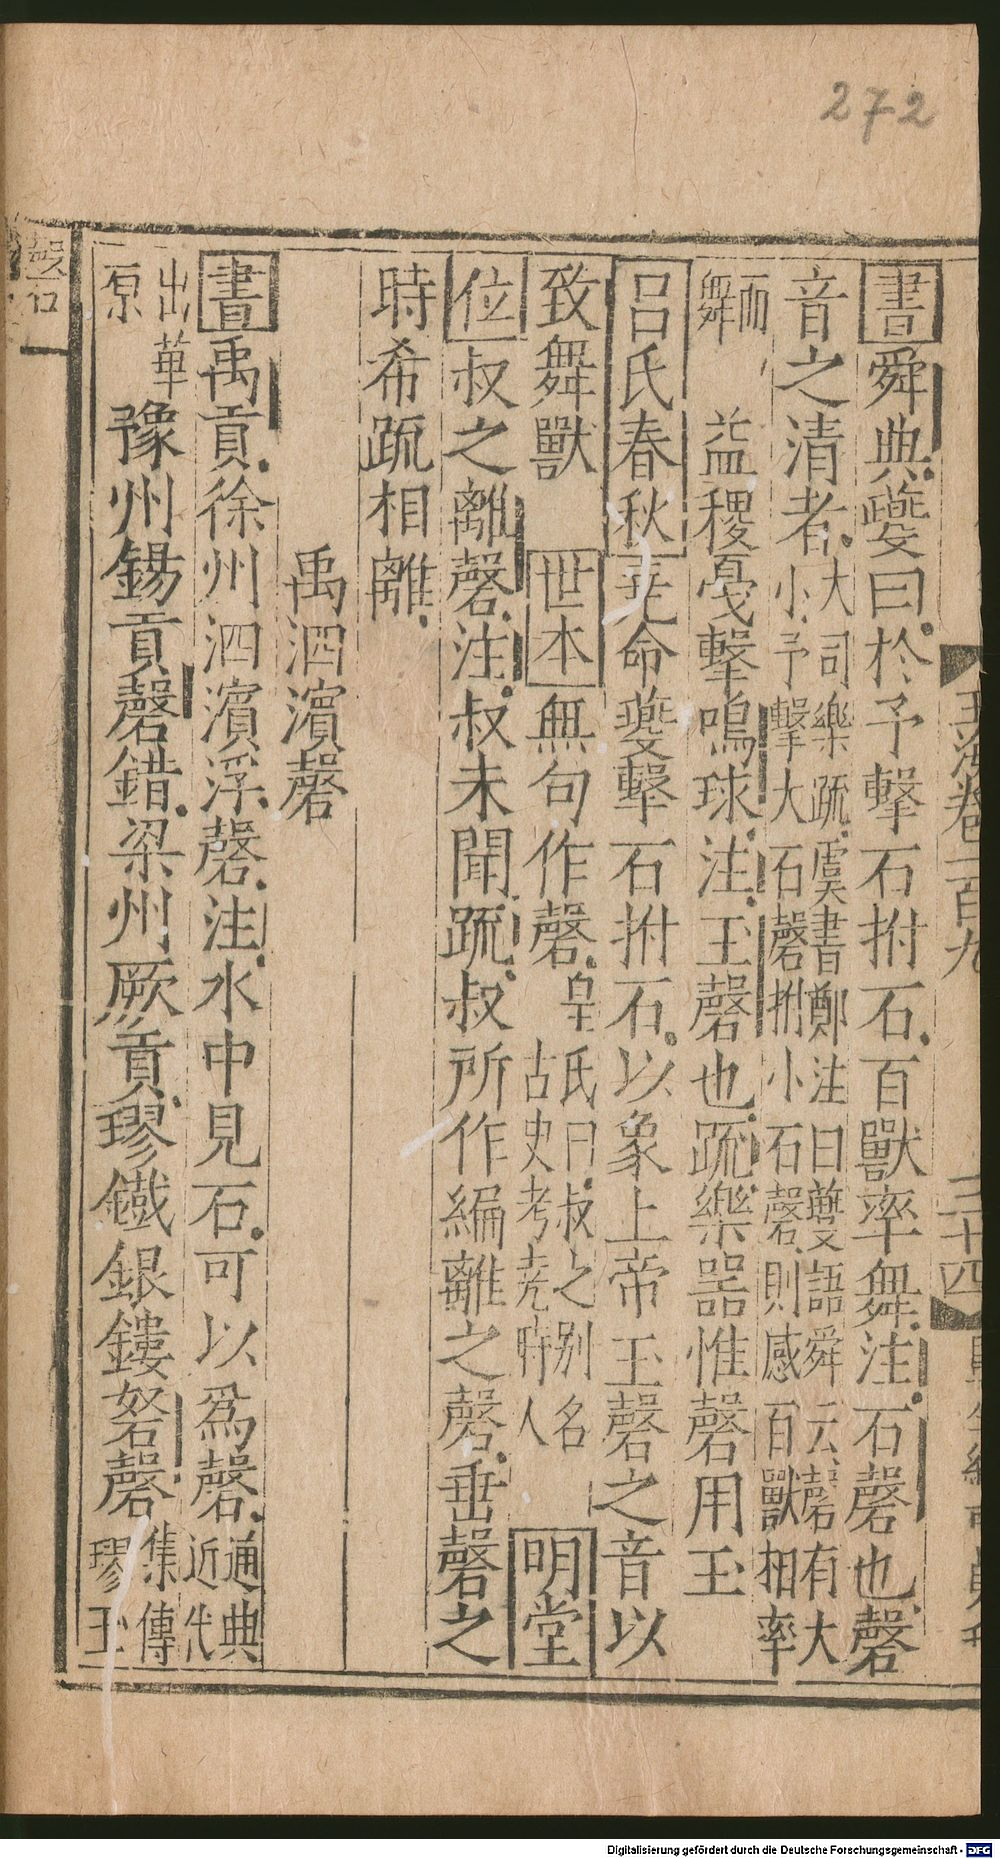 272
玉海卷一百九
三十四
書舜典夔曰於予擊石拊石百獸率舞注石磬也磬
音之清者大司樂疏虞書鄭注曰夔語舜云磬有大
小予擊大石磬拊小石磬則感百獸相率
而舞 益稷戞擊鳴球注玉磬也疏樂器惟磬用玉
呂氏春秋堯命夔擊石拊石以象上帝玉磬之音以
致舞獸 世本無句作磬皇氏曰叔之别名
古史考堯時人 明堂
位叔之離磬注叔未聞疏叔所作編離之磬垂磬之
時希疏相離
禹泗濱磬
書禹貢徐州泗濱浮磬注水中見石可以為磬通典
近代
出華
原 豫州錫貢磬錯梁州厥貢璆鐵銀鏤砮磬集傳
璆玉
磬
Digitalisierung gefördert durch die Deutsche Forschungsgemeinschaft - DFG